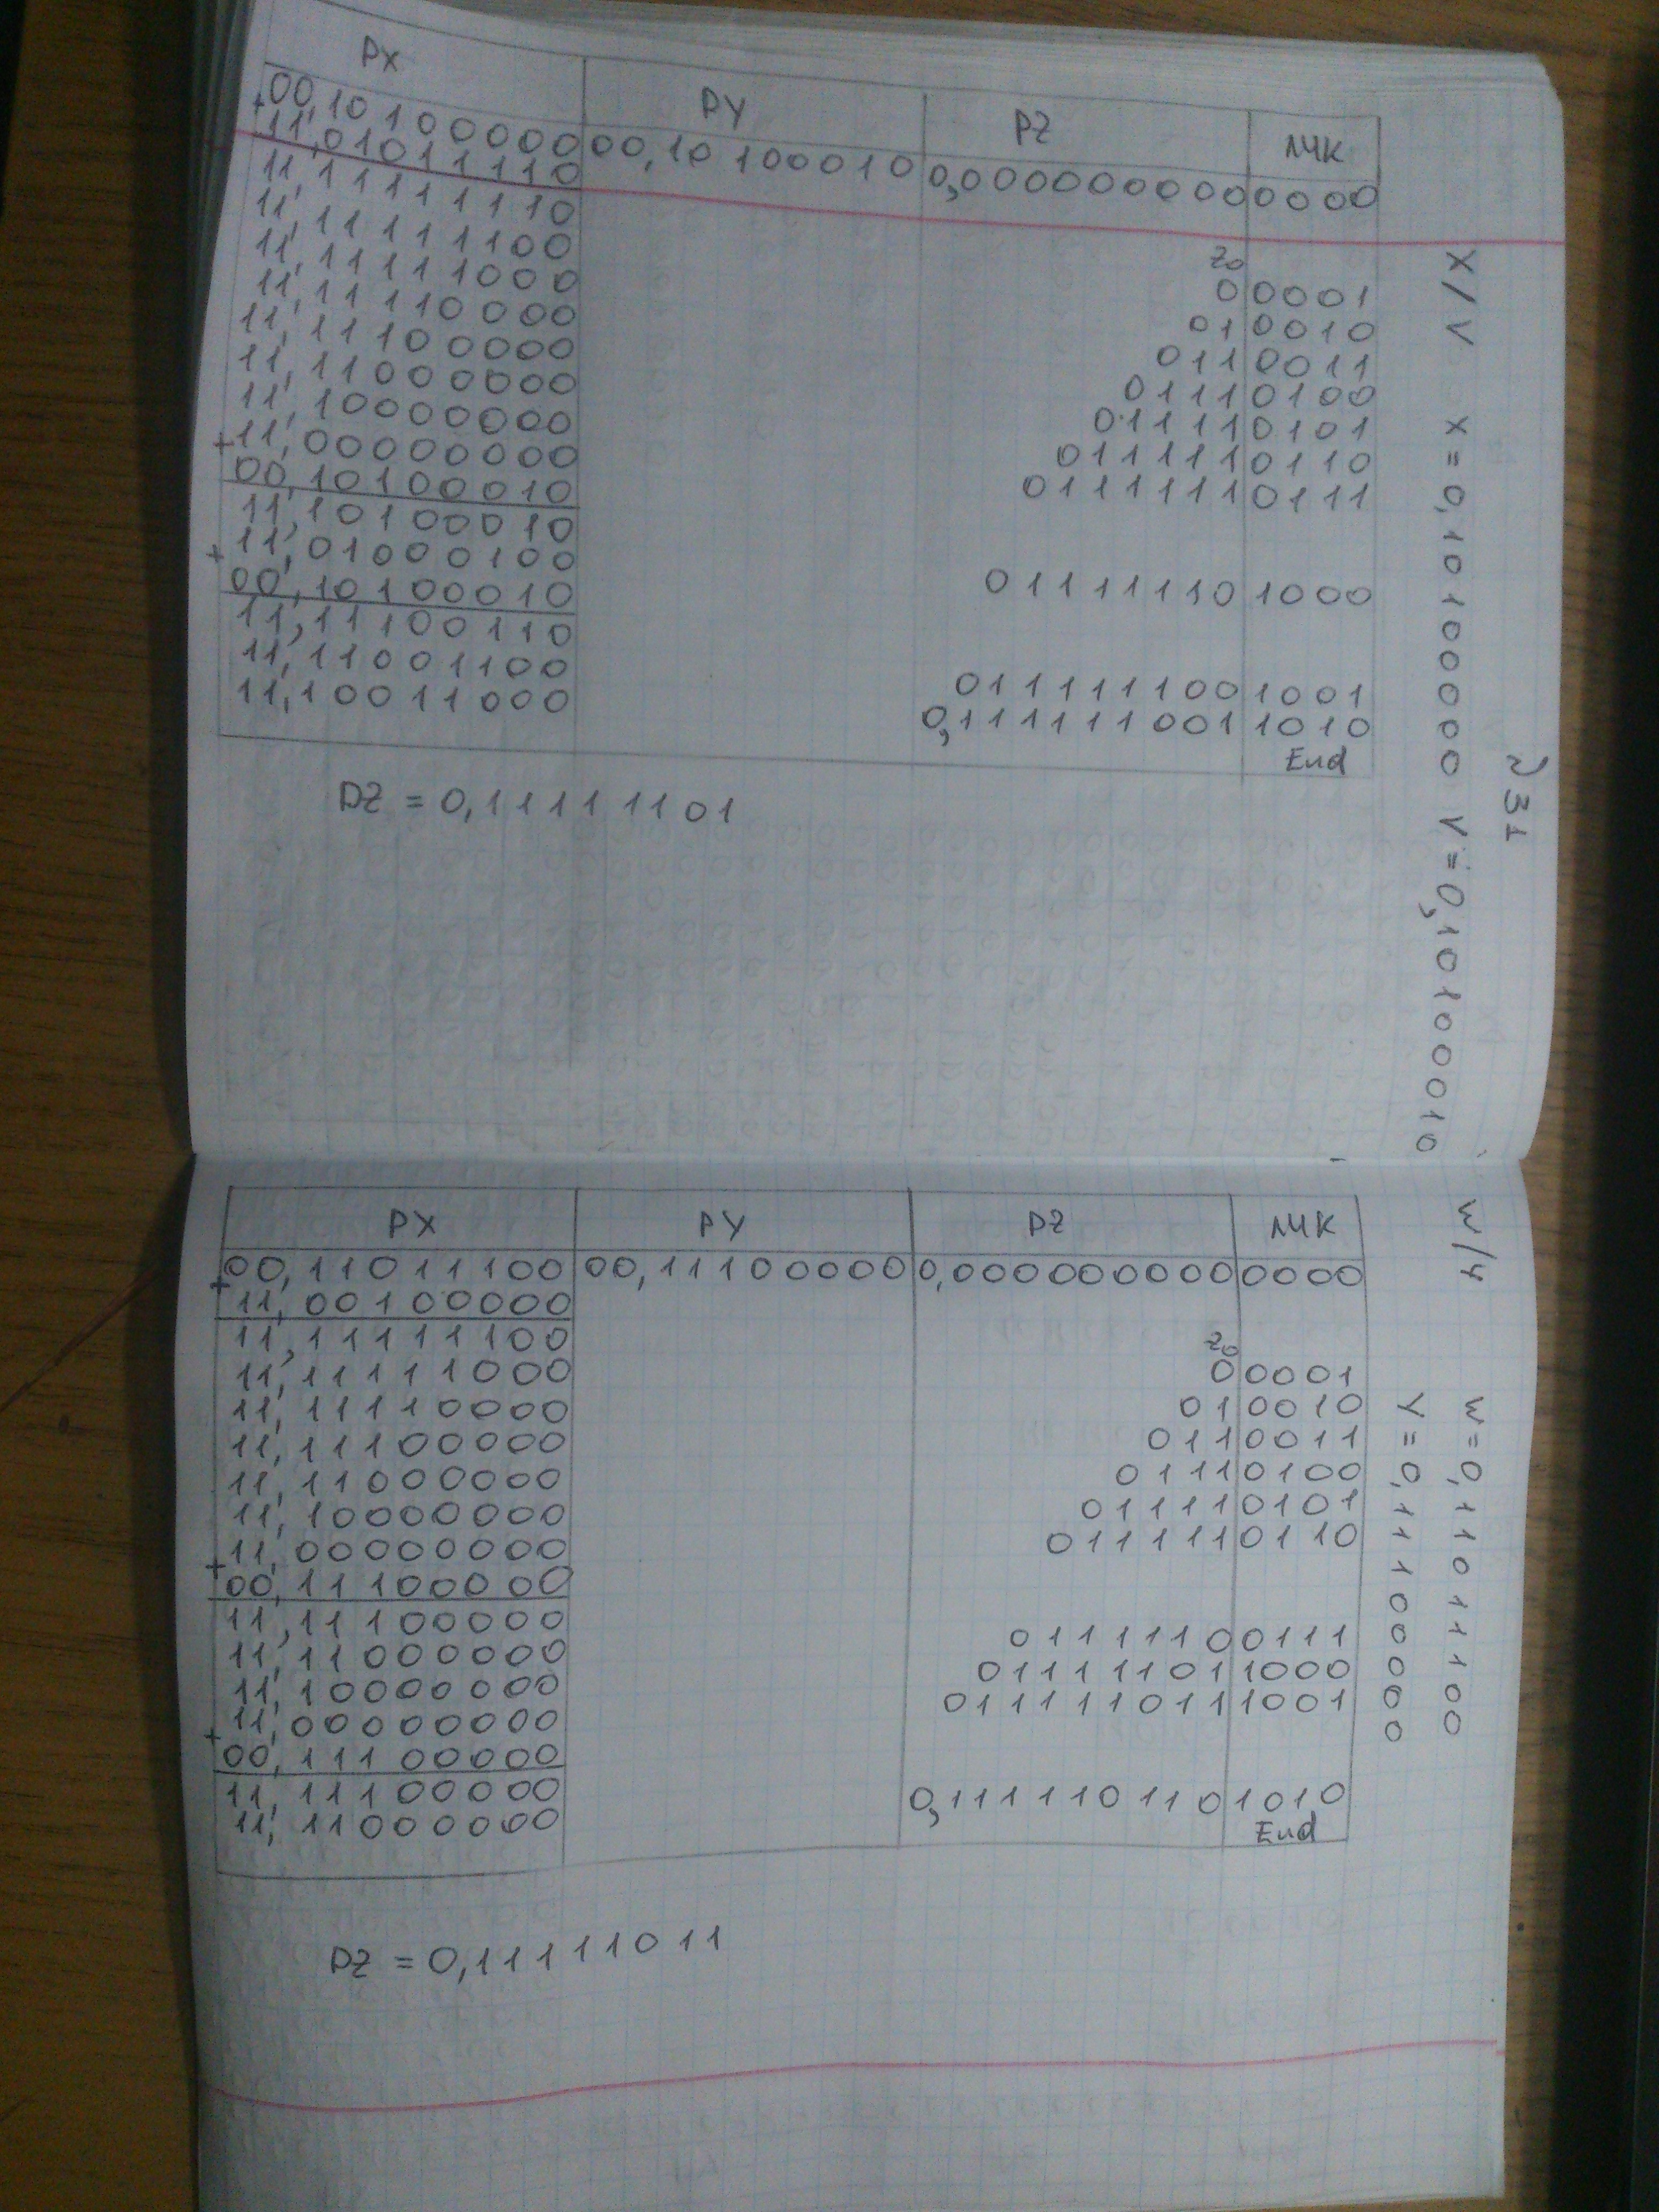 РХ РУ PZ ЛЧК
00,10100000 00,10100010 0,000000000 0000
+ 11,01011110
11,11111110 z0
11,11111100 0 0001
11,11111000 01 0010
11,11110000 011 0011
11,11100000 0111 0100
11,11000000 01111 0101
11,10000000 011111 0110
+ 11,00000000 0111111 0111
00,10100010
11,10100010
+ 11,01000100 01111110 1000
00,10100010
11,11100110
11,11001100 011111100 1001
11,10011000 0,111111001 1010
End
PZ = 0,11111101
231
X/V X=0,10100000 V=0,10100010
РХ РУ PZ ЛЧК
00,11011100 00,11100000 0,000000000 0000
+ 11,00100000
11,11111100 z0
11,11111000 0 0001
11,11110000 01 0010
11,11100000 011 0011
11,11000000 0111 0100
11,10000000 01111 0101
+ 11,00000000 011111 0110
00,11100000
11,11100000
11,11000000 0111110 0111
11,10000000 01111101 1000
+ 11,00000000 011111011 1001
00,11100000
11,11100000 0,111110110 1010
11,11000000 End
PZ = 0,11111011
W/Y W=0,11011100
Y=0,11100000